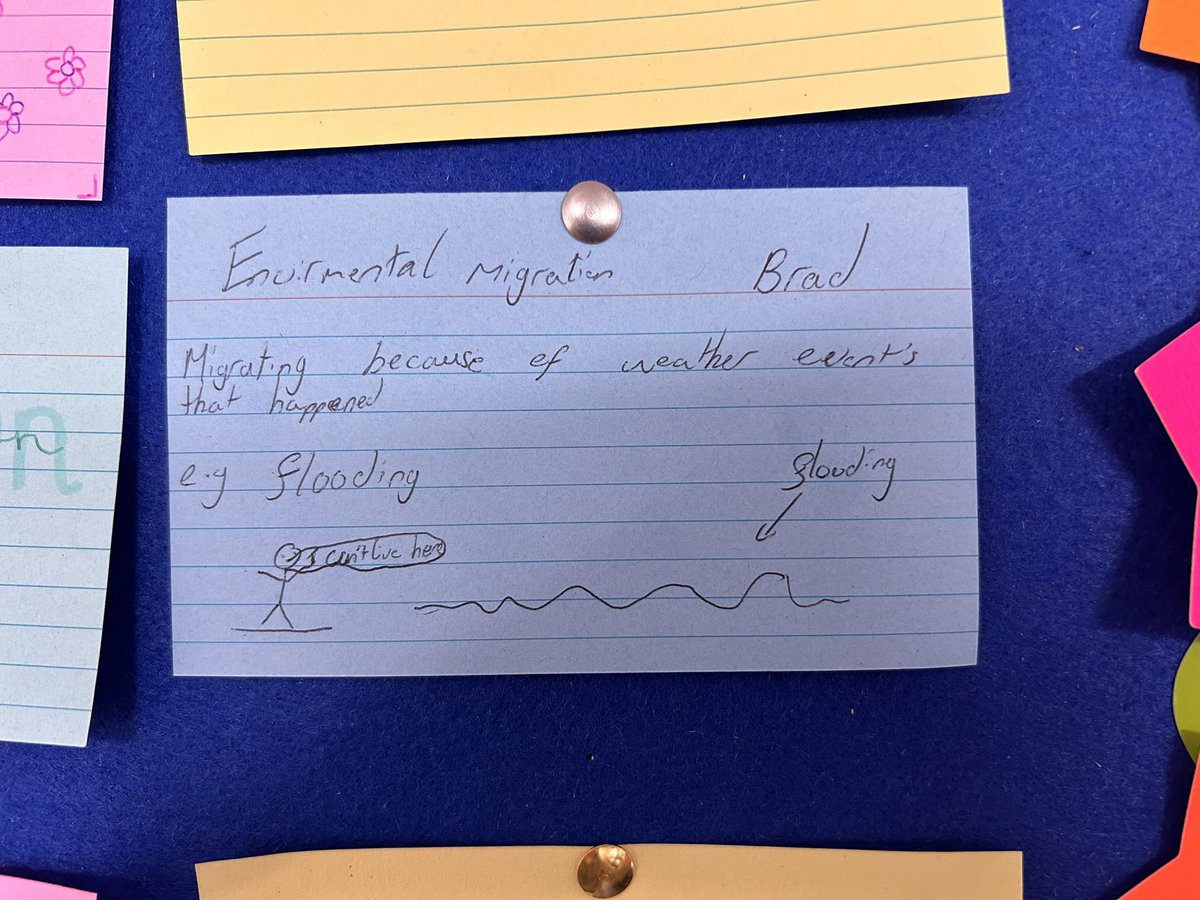 Envirmental Migration Brad
Migrating because of weather event's
that happened
e.g flooding
flooding
I can't live here